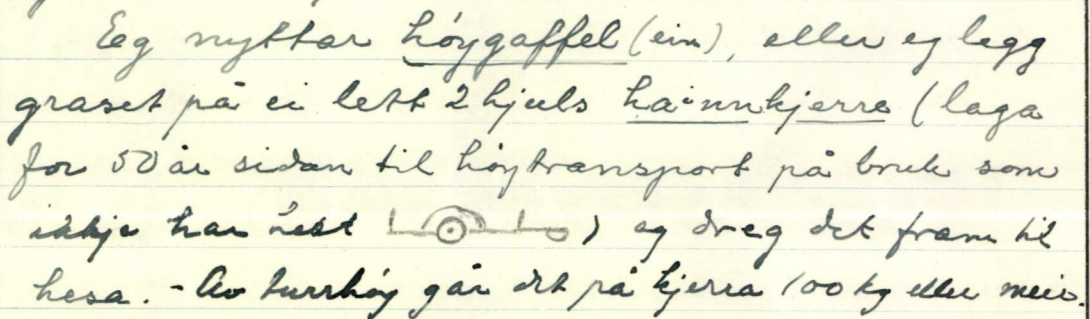 Eg nyttar høygaffel (ein), eller eg legg
graset på ei lett 2 hjuls hainnkjerre (laga
for 50 år sidan til høytransport på bruk som
ikkje har hest ) og dreg det fram til
hesa. - Av turrhøy går det på kjerra 100 kg eller meir.